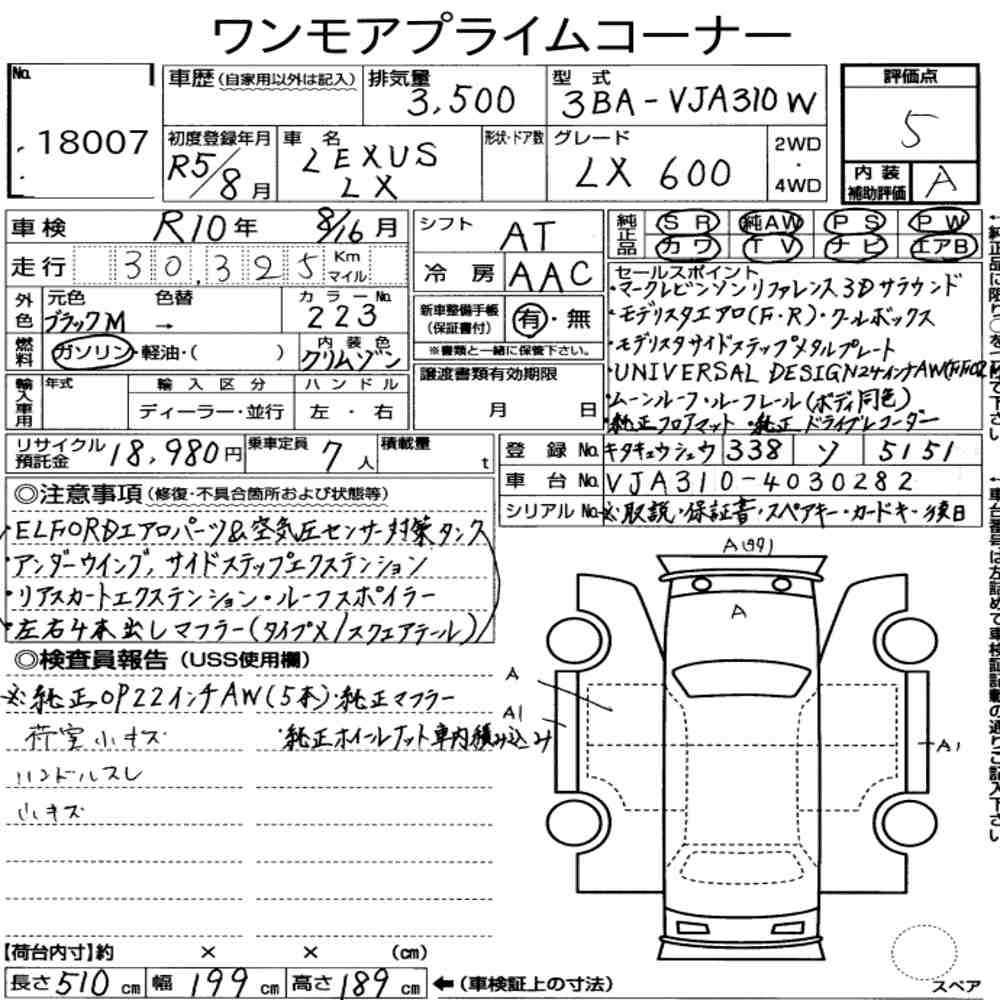 ワンモアプライムコーナー
No. 18007
車歴(自家用以外は記入) 排気量 3,500 型式 3BA-VJA310W 評価点 5
初度登録年月 R5/8月 車名 LEXUS LX 形状・ドア数 グレード LX 600 2WD・4WD 内装補助評価 A
車検 R10年 8/16月 シフト AT 純正品 SR 純AW PS PW
走行 30,325 Km マイル 冷房 AAC カワ TV ナビ エアB
外色 元色 ブラックM 色替 → カラーNo. 223 新車整備手帳(保証書付) 有・無
燃料 ガソリン・軽油・( ) 内装色 クリムゾン ※書類と一緒に保管下さい。
輸入車用 年式 輸入区分 ディーラー・並行 ハンドル 左・右 譲渡書類有効期限 月 日
セールスポイント
・マークレビンソンリファレンス3Dサラウンド
・モデリスタエアロ(F・R)・クールボックス
・モデリスタサイドステップメタルプレート
・UNIVERSAL DESIGN24インチAW
・ムーンルーフ・ルーフレール(ボディ同色)
・純正フロアマット ・純正ドライブレコーダー
←純正品に限り○を
て下さい
リサイクル預託金 18,980円 乗車定員 7人 積載量 t
登録No. キタキュウシュウ 338 ソ 5151
車台No. VJA310-4030282
シリアルNo. ※取説・保証書・スペアキー・カードキー後日
←車台番号は左詰めで車検証記載の通りご記入下さい
◎注意事項(修復・不具合箇所および状態等)
・ELFORDエアロパーツ&空気圧センサー対策タンク
・アンダーウイング,サイドステップエクステンション
・リアスカートエクステンション・ルーフスポイラー
・左右4本出しマフラー(タイプX/スクエアテール)
◎検査員報告(USS使用欄)
※純正OP22インチAW(5本)・純正マフラー
荷室小キズ ・純正ホイールナット車内積み込み
ハンドルスレ
小キズ
A
A
A
A1
A1
【荷台内寸】約 × × (cm)
長さ510cm 幅199cm 高さ189cm ←(車検証上の寸法)
スペア